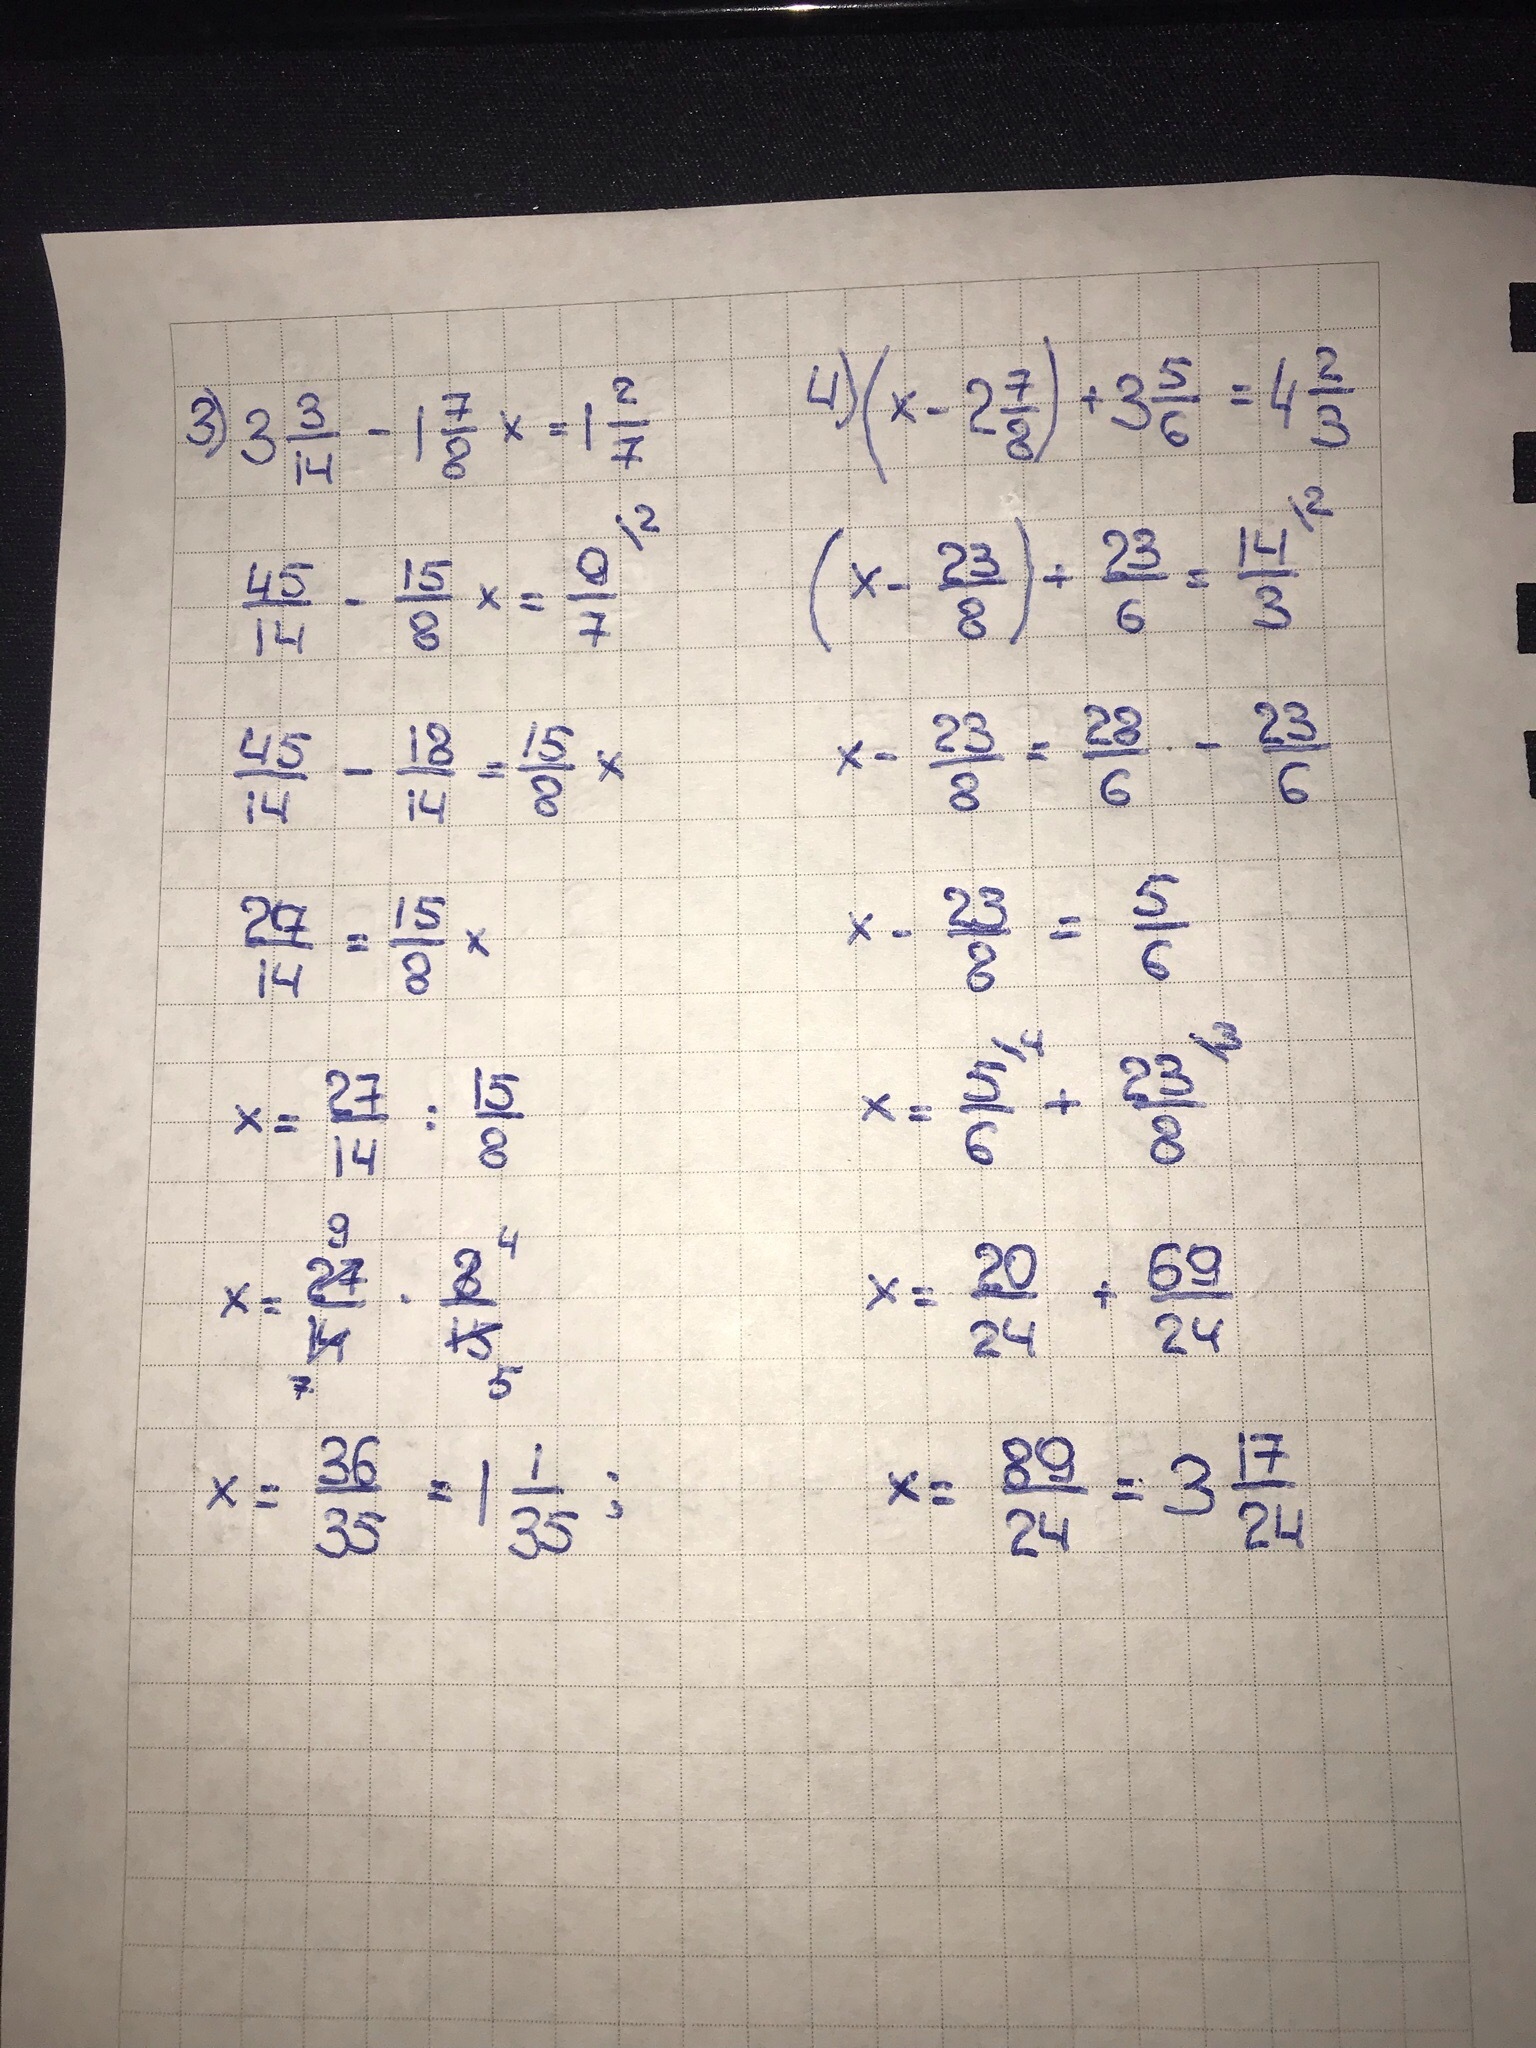 3) 3 3/14 - 1 7/8 x = 1 2/7
45/14 - 15/8 x = 9/7 \2
45/14 - 18/14 = 15/8 x
27/14 = 15/8 x
x = 27/14 : 15/8
x = 27/14 · 8/15 9 4 7 5
x = 36/35 = 1 1/35 ;
4) (x - 2 7/8) + 3 5/6 = 4 2/3
(x - 23/8) + 23/6 = 14/3 \2
x - 23/8 = 28/6 - 23/6
x - 23/8 = 5/6
x = 5/6 \4 + 23/8 \3
x = 20/24 + 69/24
x = 89/24 = 3 17/24